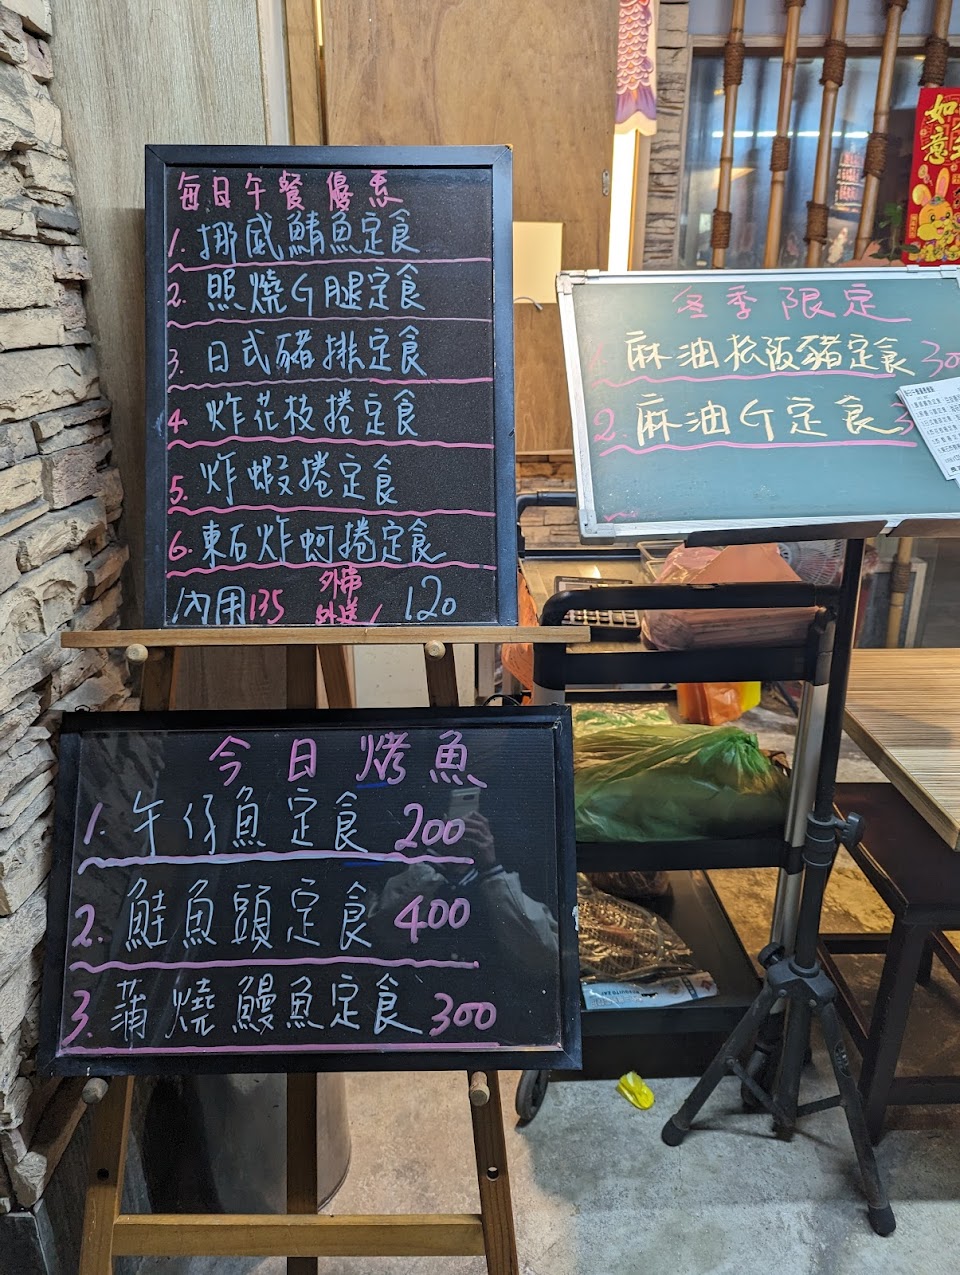 每日午餐優惠
1. 挪威鯖魚定食
2. 照燒G腿定食
3. 日式豬排定食
4. 炸花枝捲定食
5. 炸蝦捲定食
6. 東石炸蚵捲定食
內用135 外帶 外送 120
今日烤魚
1. 午仔魚定食 200
2. 鮭魚頭定食 400
3. 蒲燒鰻魚定食 300
冬季限定
1. 麻油松阪豬定食 30
2. 麻油G定食 3
如意